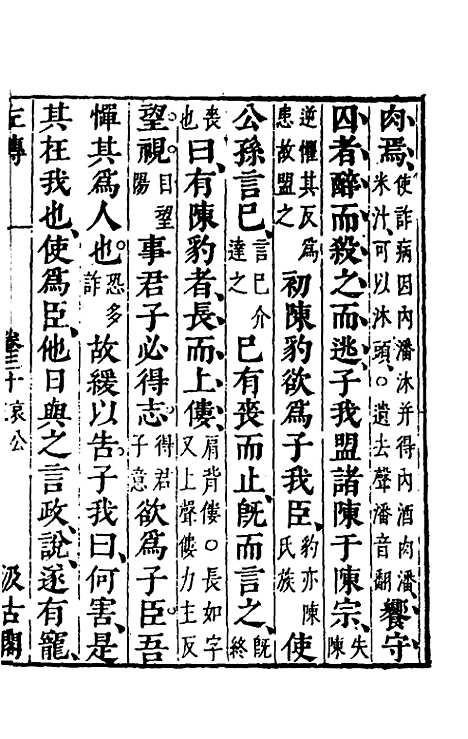 肉焉、使詐病因內潘沐并得內酒肉潘米汁、可以沐頭、○遺去聲潘音翻饗守
囚者、醉而殺之、而逃、子我盟諸陳于陳宗、失陳
逆懼其反爲患故盟之初陳豹欲爲子我臣、豹亦陳氏族使
公孫言己、言己介達之已有喪而止、旣而言之、旣終
喪也曰、有陳豹者、長而上僂、肩背僂○長如字又上聲僂力主反
望視、目望陽事君子必得志、得君子意欲爲子臣。吾
憚其爲人也。恐多詐故緩以告。子我曰、何害、是
其在我也、使爲臣、他日與之言政、說、遂有寵、
左傳 卷三十 哀公 汲古閣